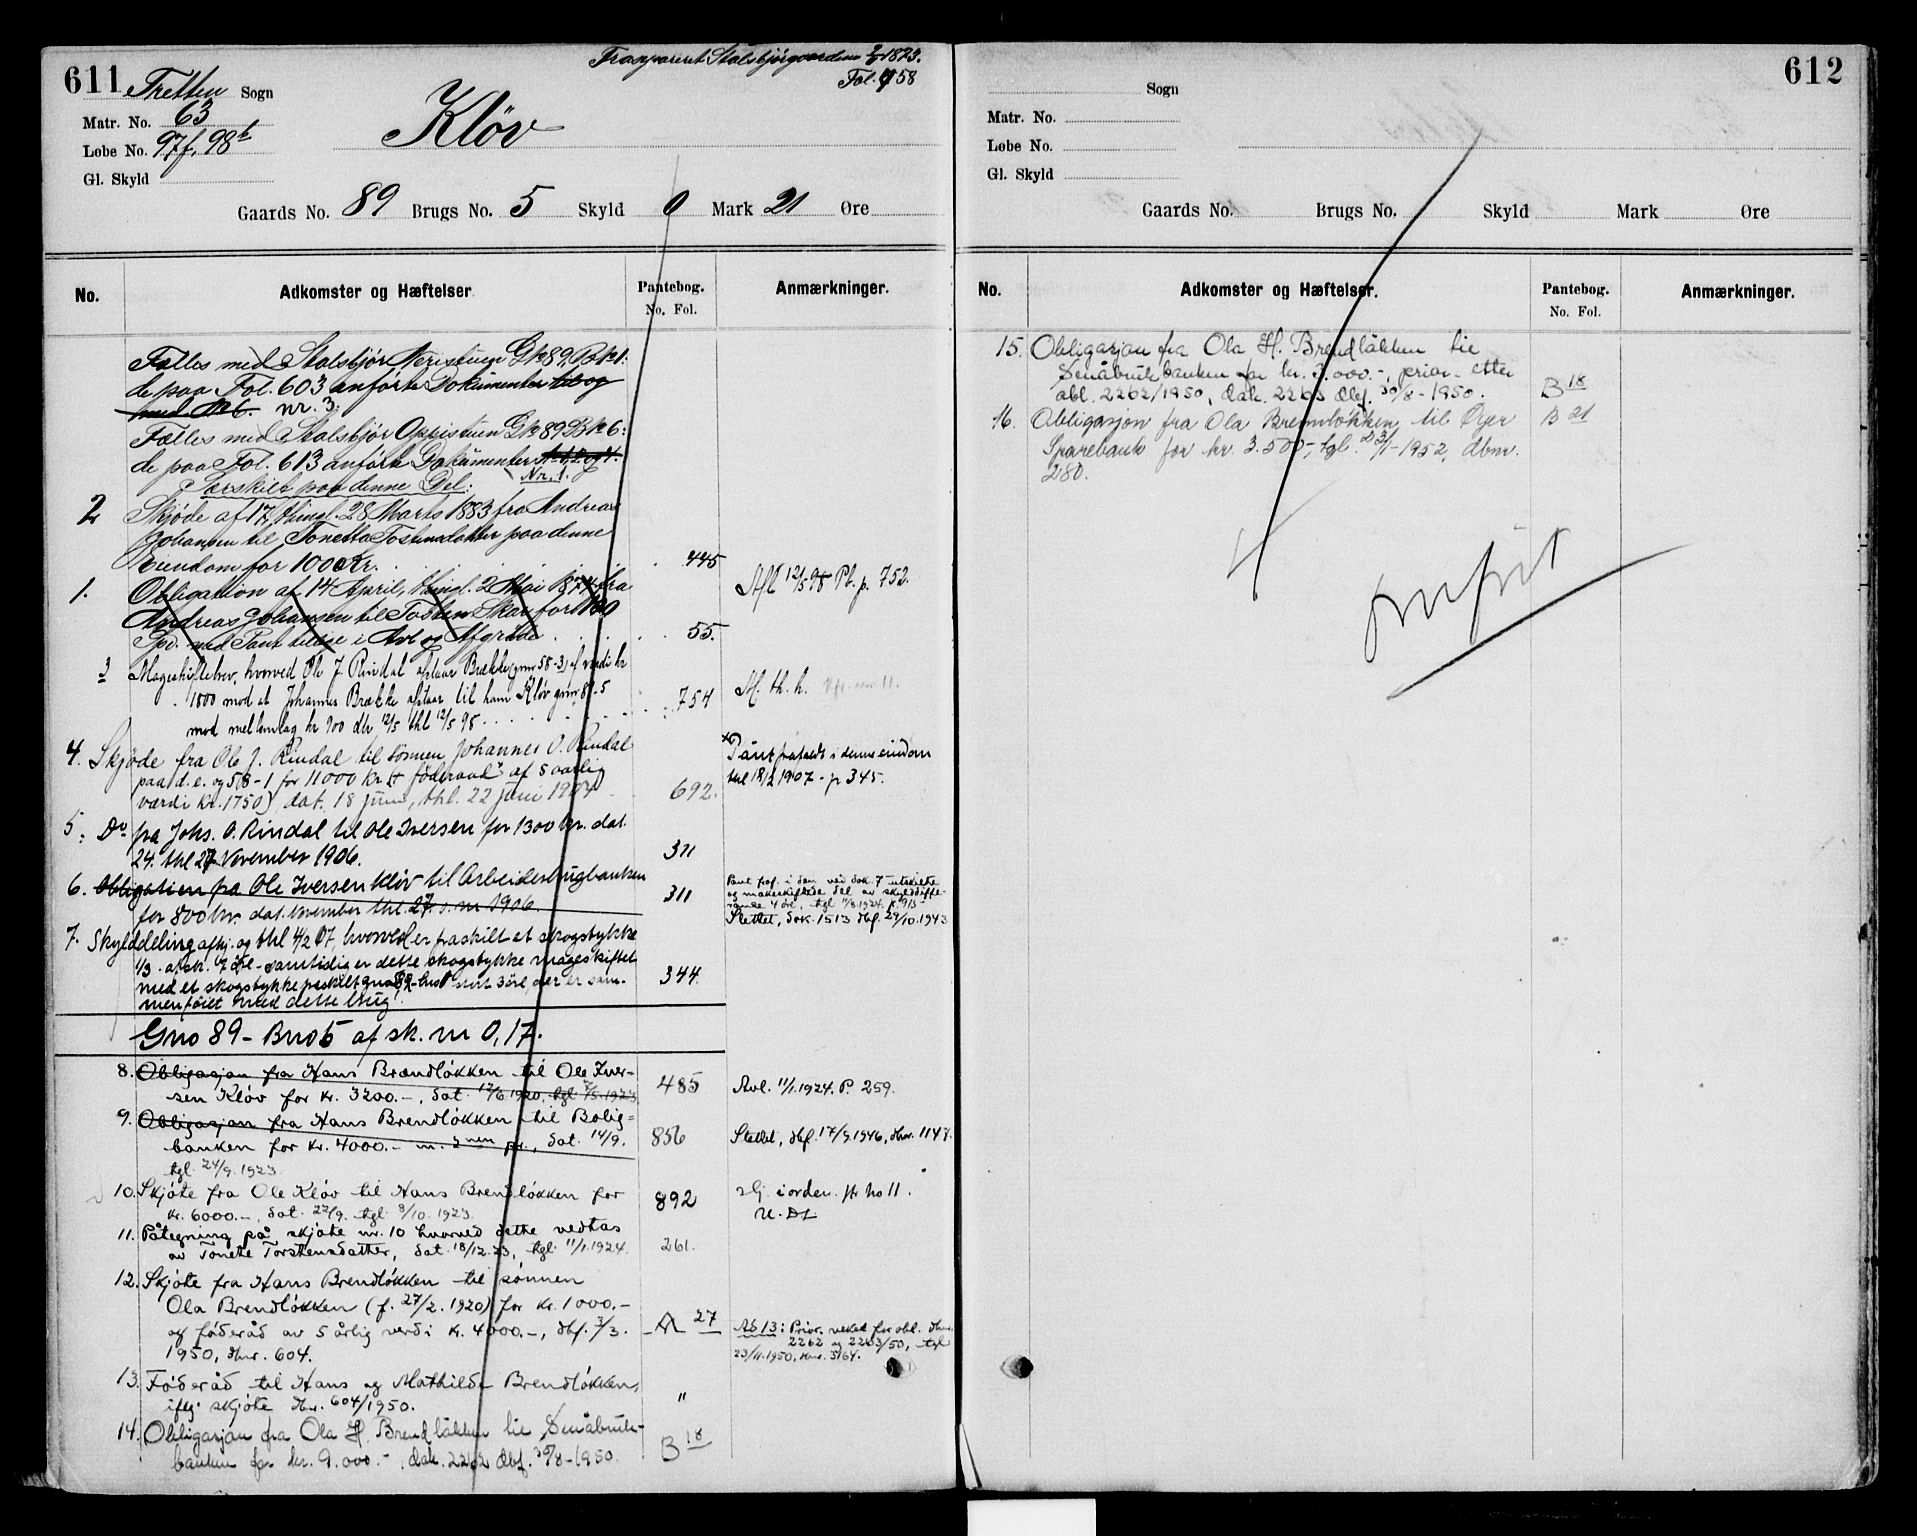 Transporteret Stalsbjørgaardene 1823.
Fol. 458
611 Tretten Sogn
Matr. No. 63
Løbe No. 97f, 98b
Gl. Skyld
Kløv
Gaards No. 89 Brugs No. 5 Skyld 0 Mark 21 Øre
No. Adkomster og Hæftelser Pantebog. No. Fol. Anmærkninger.
Fælles med Stalsbjør Neristuen Gno 89 Bno 1:
de paa Fol. 603 anførte Dokumenter til og
med No 6. nr. 3.
Fælles med Stalsbjør Oppistuen Gno 89 Bno 6:
de paa Fol. 613 anførte Dokumenter No 1, 2 og 4.
Nr. 1.
Særskilt paa denne Del:
2 Skjøde af 17, thingl. 28 Marts 1883 fra Andreas
Johansen til Tonetta Tostensdatter paa denne
Eiendom for 1000 Kr. 445
1. Obligation af 14 April, thingl. 2 Mai 1874 fra
Andreas Johansen til Tosten Skar for 100
Spd. med Pant tillige i Avl og Afgrøde 55.
Afl 12/5 98 Pb. p. 752.
3 Mageskiftebrev, hvorved Ole J. Rindal afstaar Brække gnr 58-3 af værdi kr
1800 mod at Johannes Brække afstaar til ham Kløv gnr 89-5
mod mellemlag kr 900 dtr 12/5 thl 12/5 98 754
Af. th. h. Kfr. nr. 11.
4. Skjøde fra Ole J. Rindal til sønnen Johannes O. Rindal
paa d. e. og 58-1 for 11000 kr. (+ føderaad x af 5 aarlig
værdi kr. 1750), dat. 18 juni, thl. 22 juni 1904 692.
x Pant frafaldt i denne eiendom
thl 18/2 1907 - p 345.
5. Do fra Johs. O. Rindal til Ole Iversen for 1300 kr. dat.
24. thl 27 November 1906. 311
6. Obligation fra Ole Iversen Kløv til Arbeiderbrugbanken
for 800 kr. dat. November thl. 27. s. m 1906. 311
Pant fraf. i den ved dok. 7 utskilte
og makeskiftede del av skylddifte-
rande 4 øre, tgl 11/8.1924. p. 915-
Slettet, dok. 1513 dbf. 29/10.1943
7. Skylddeling afhj. og thl 4/2 07, hvorved er fraskilt et skogstykke
1/3. af sk. 7 øre - samtidig er dette skogstykke mageskiftet
med et skogstykke fraskilt gno 89 - bno stort 3 øre, der er sam-
menføiet med dette brug. 344.
Gno 89 - Bno 5 af sk. m 0,17.
8. Obligasjon fra Hans Brændløkken til Ole Iver-
sen Kløv for kr. 3200.-, dat. 17/6 1920, tgl 2/5.1923 485
Avl. 11/1.1924. P. 259.
9. Obligasjon fra Hans Brendløkken til Bolig-
banken for kr. 4000.- m. 2nen pr., dat. 14/9.
tgl. 24/9.1923. 856
Slettet, dbf. 17/9.1946, dbnr. 1147.
10. Skjøte fra Ole Kløv til Hans Brendløkken for
kr. 6000.-, dat. 22/9. tgl 8/10. 1923. 892
Hj. i orden. jfr No 11.
11. Påtegning på skjøte nr. 10 hvorved dette vedtas
av Tonete Torstensdatter, dat. 18/12.23, tgl. 11/1.1924. 261.
12. Skjøte fra Hans Brendløkken til sønnen
Ola Brendløkken (f. 27/2. 1920) for kr. 1000.-
og føderåd av 5 årlig verdi kr. 4000.-, dbf. 3/3.
1950, dnr. 604. A 27
Ad 13: Prior. veket for obl. dbnr.
2262 og 2263/50, tgl
23/11.1950, dbnr. 3164.
13. Føderåd til Hans og Mathilde Brendløkken,
iflg. skjøte dbr. 604/1950. "
14. Obligasjon fra Ola H. Brendløkken til Småbruk-
banken for kr. 9.000.-, dok. 2262 dbf. 30/8-1950. B 18
612
Sogn
Matr. No.
Løbe No.
Gl. Skyld
Gaards No. Brugs No. Skyld Mark Øre
No. Adkomster og Hæftelser. Pantebog. No. Fol. Anmærkninger.
15. Obligasjon fra Ola H. Brendløkken til
Småbrukbanken for kr. 3.000.-, prior. etter
obl. 2262/1950, dok. 2263 dbf. 30/8-1950. B 18
16. Obligasjon fra Ola Brennløkken til Øyer
Sparebank for kr. 3.500,-, tgl. 23/1-1952, dbnr.
280. B 21